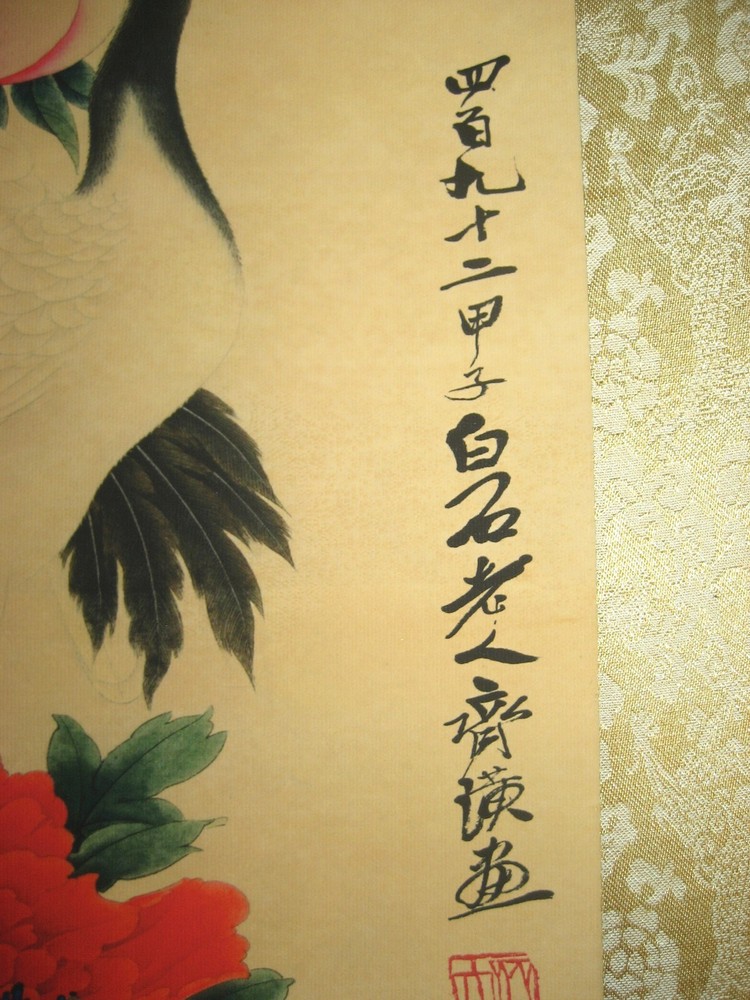 四百九十二甲子白石老人齊璜画